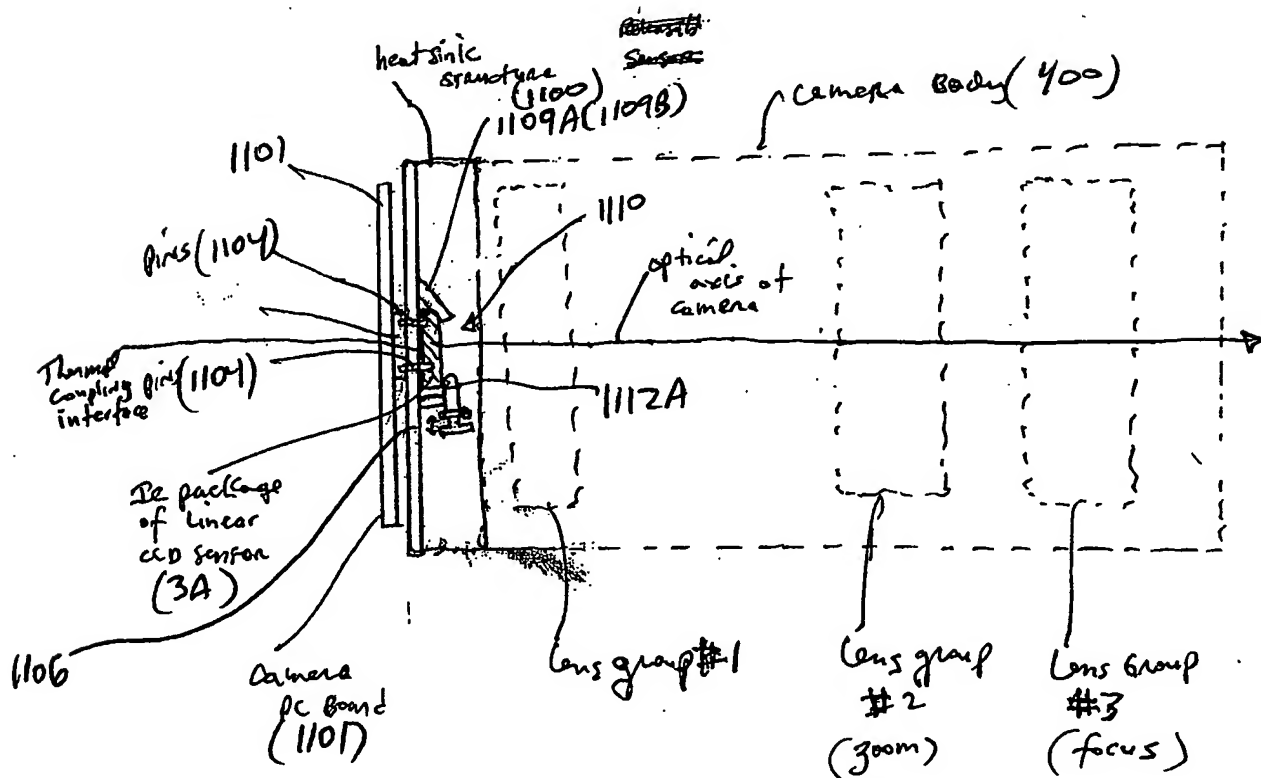 heatsink
structure
(1100)
1109A(1109B)
Camera Body (400)
1101
pins (1104)
1110
optical
axis of
camera
Thermal
coupling
interface
pins (1104)
1112A
IC package
of Linear
CCD sensor
(3A)
1106
Camera
PC Board
(1101)
Lens group #1
Lens group
#2
(zoom)
Lens Group
#3
(focus)